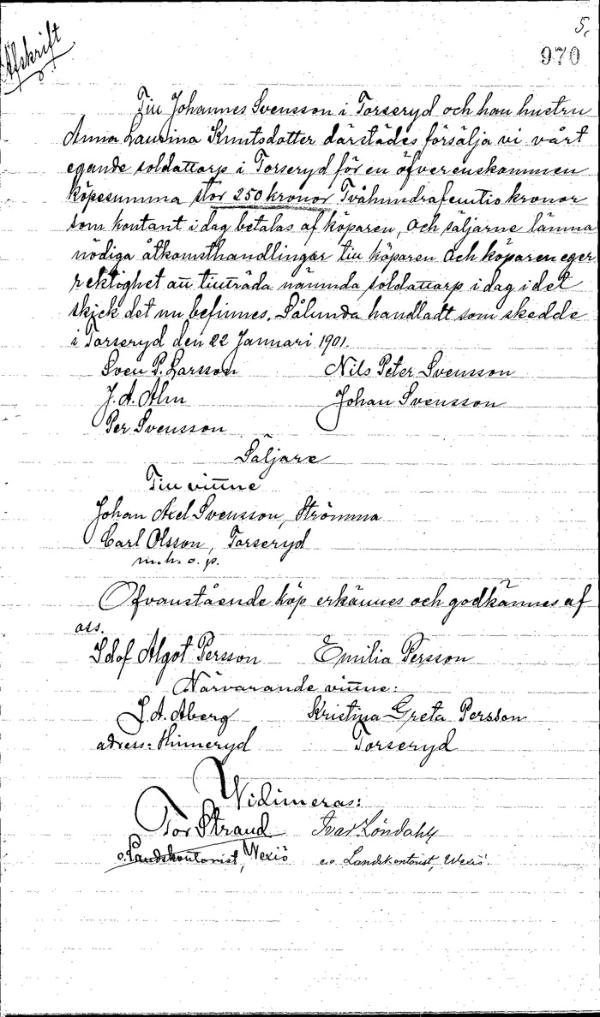 5.
Afskrift
970
Till Johannes Svensson i Torseryd och han hustru
Anna Laurina Knutsdotter därstädes försälja vi vårt
egande soldattorp i Torseryd för en öfverenskommen
köpesumma stor 250 kronor Tvåhundrafemtio kronor
som kontant i dag betalas af köparen, och säljarne lämna
nödiga åtkomsthandlingar till köparen och köparen eger
rektighet att tillträda nämnda soldattorp i dag i det
skick det nu befinnes. Sålunda handladt som skedde
i Torseryd den 22 Januari 1901.
Sven P. Larsson Nils Peter Svensson
J. A. Alm Johan Svensson
Per Svensson
Säljare
Till vittne
Johan Axel Svensson, Strömma
Carl Olsson, Torseryd
m. h. o. p.
Ofvanstående köp erkännes och godkännes af
oss.
Idof Algot Persson Emilia Persson
Närvarande vittne:
J. A. Aberg Kristina Greta Persson
adress: Hinneryd Torseryd
Vidimeras:
Tor Strand Ivar Löndahl
o. Landskontorist, Wexiö e. o. Landskontorist, Wexiö.